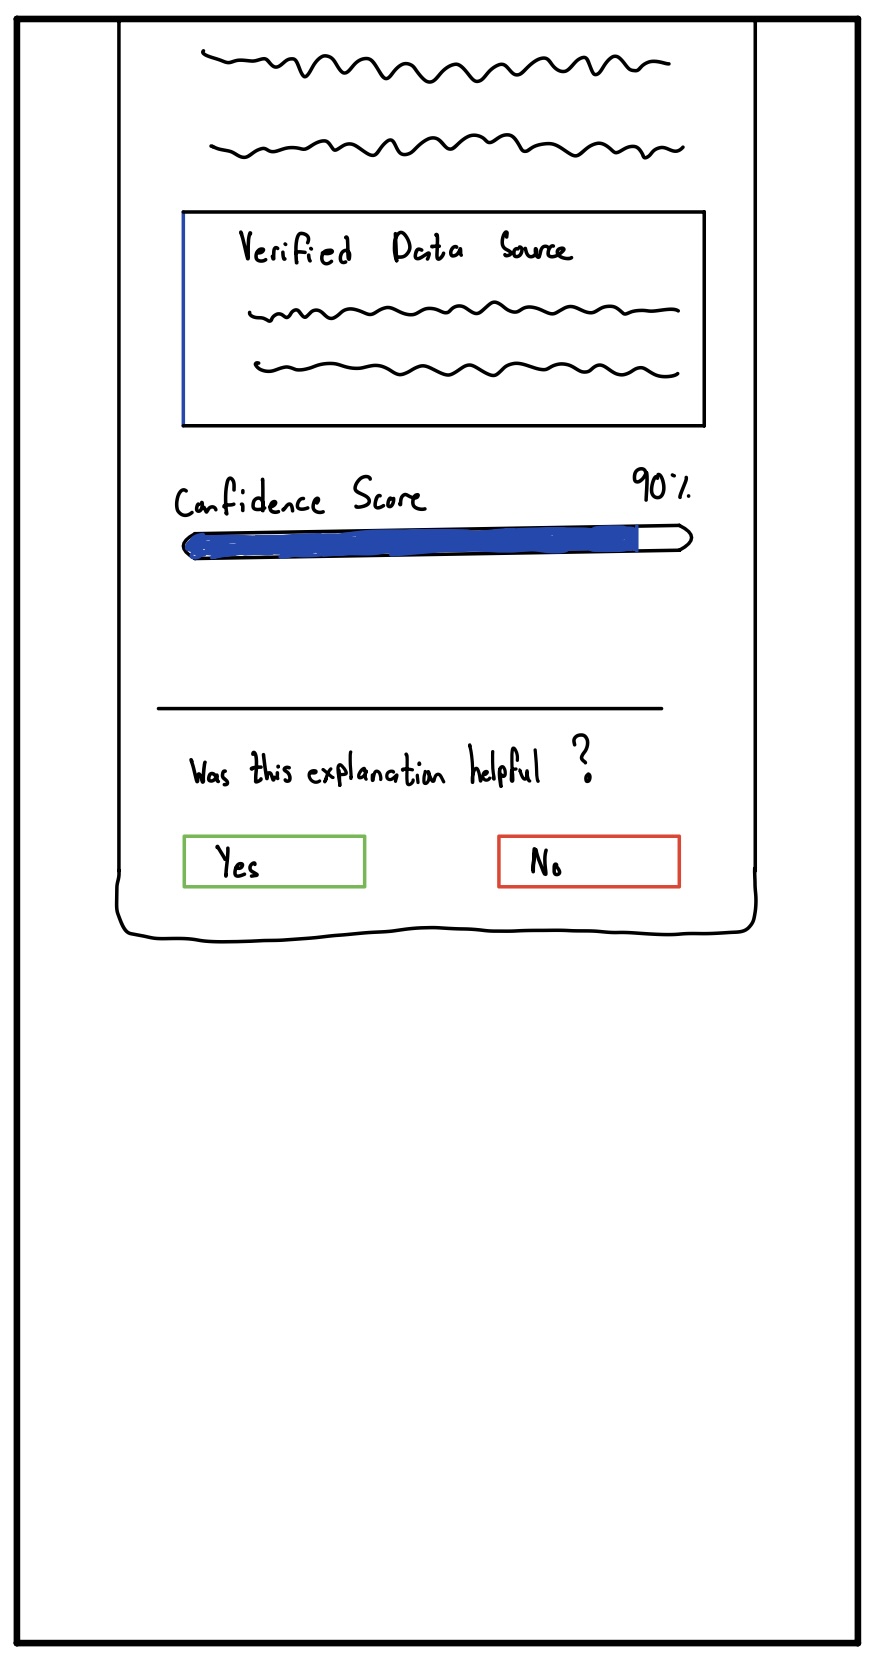 Verified Data Source
Confidence Score 90%
Was this explanation helpful ?
Yes No